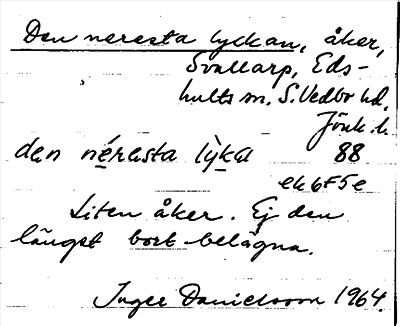 Den neresta lyckan, åker,
Svallarp, Eds-
hults sn. S. Vedbo hd.
Jönk. l.
den nérasta lỳka 88
ek 6F5e
Liten åker. Ej den
längst bort belägna.
Inger Danielsson 1964.